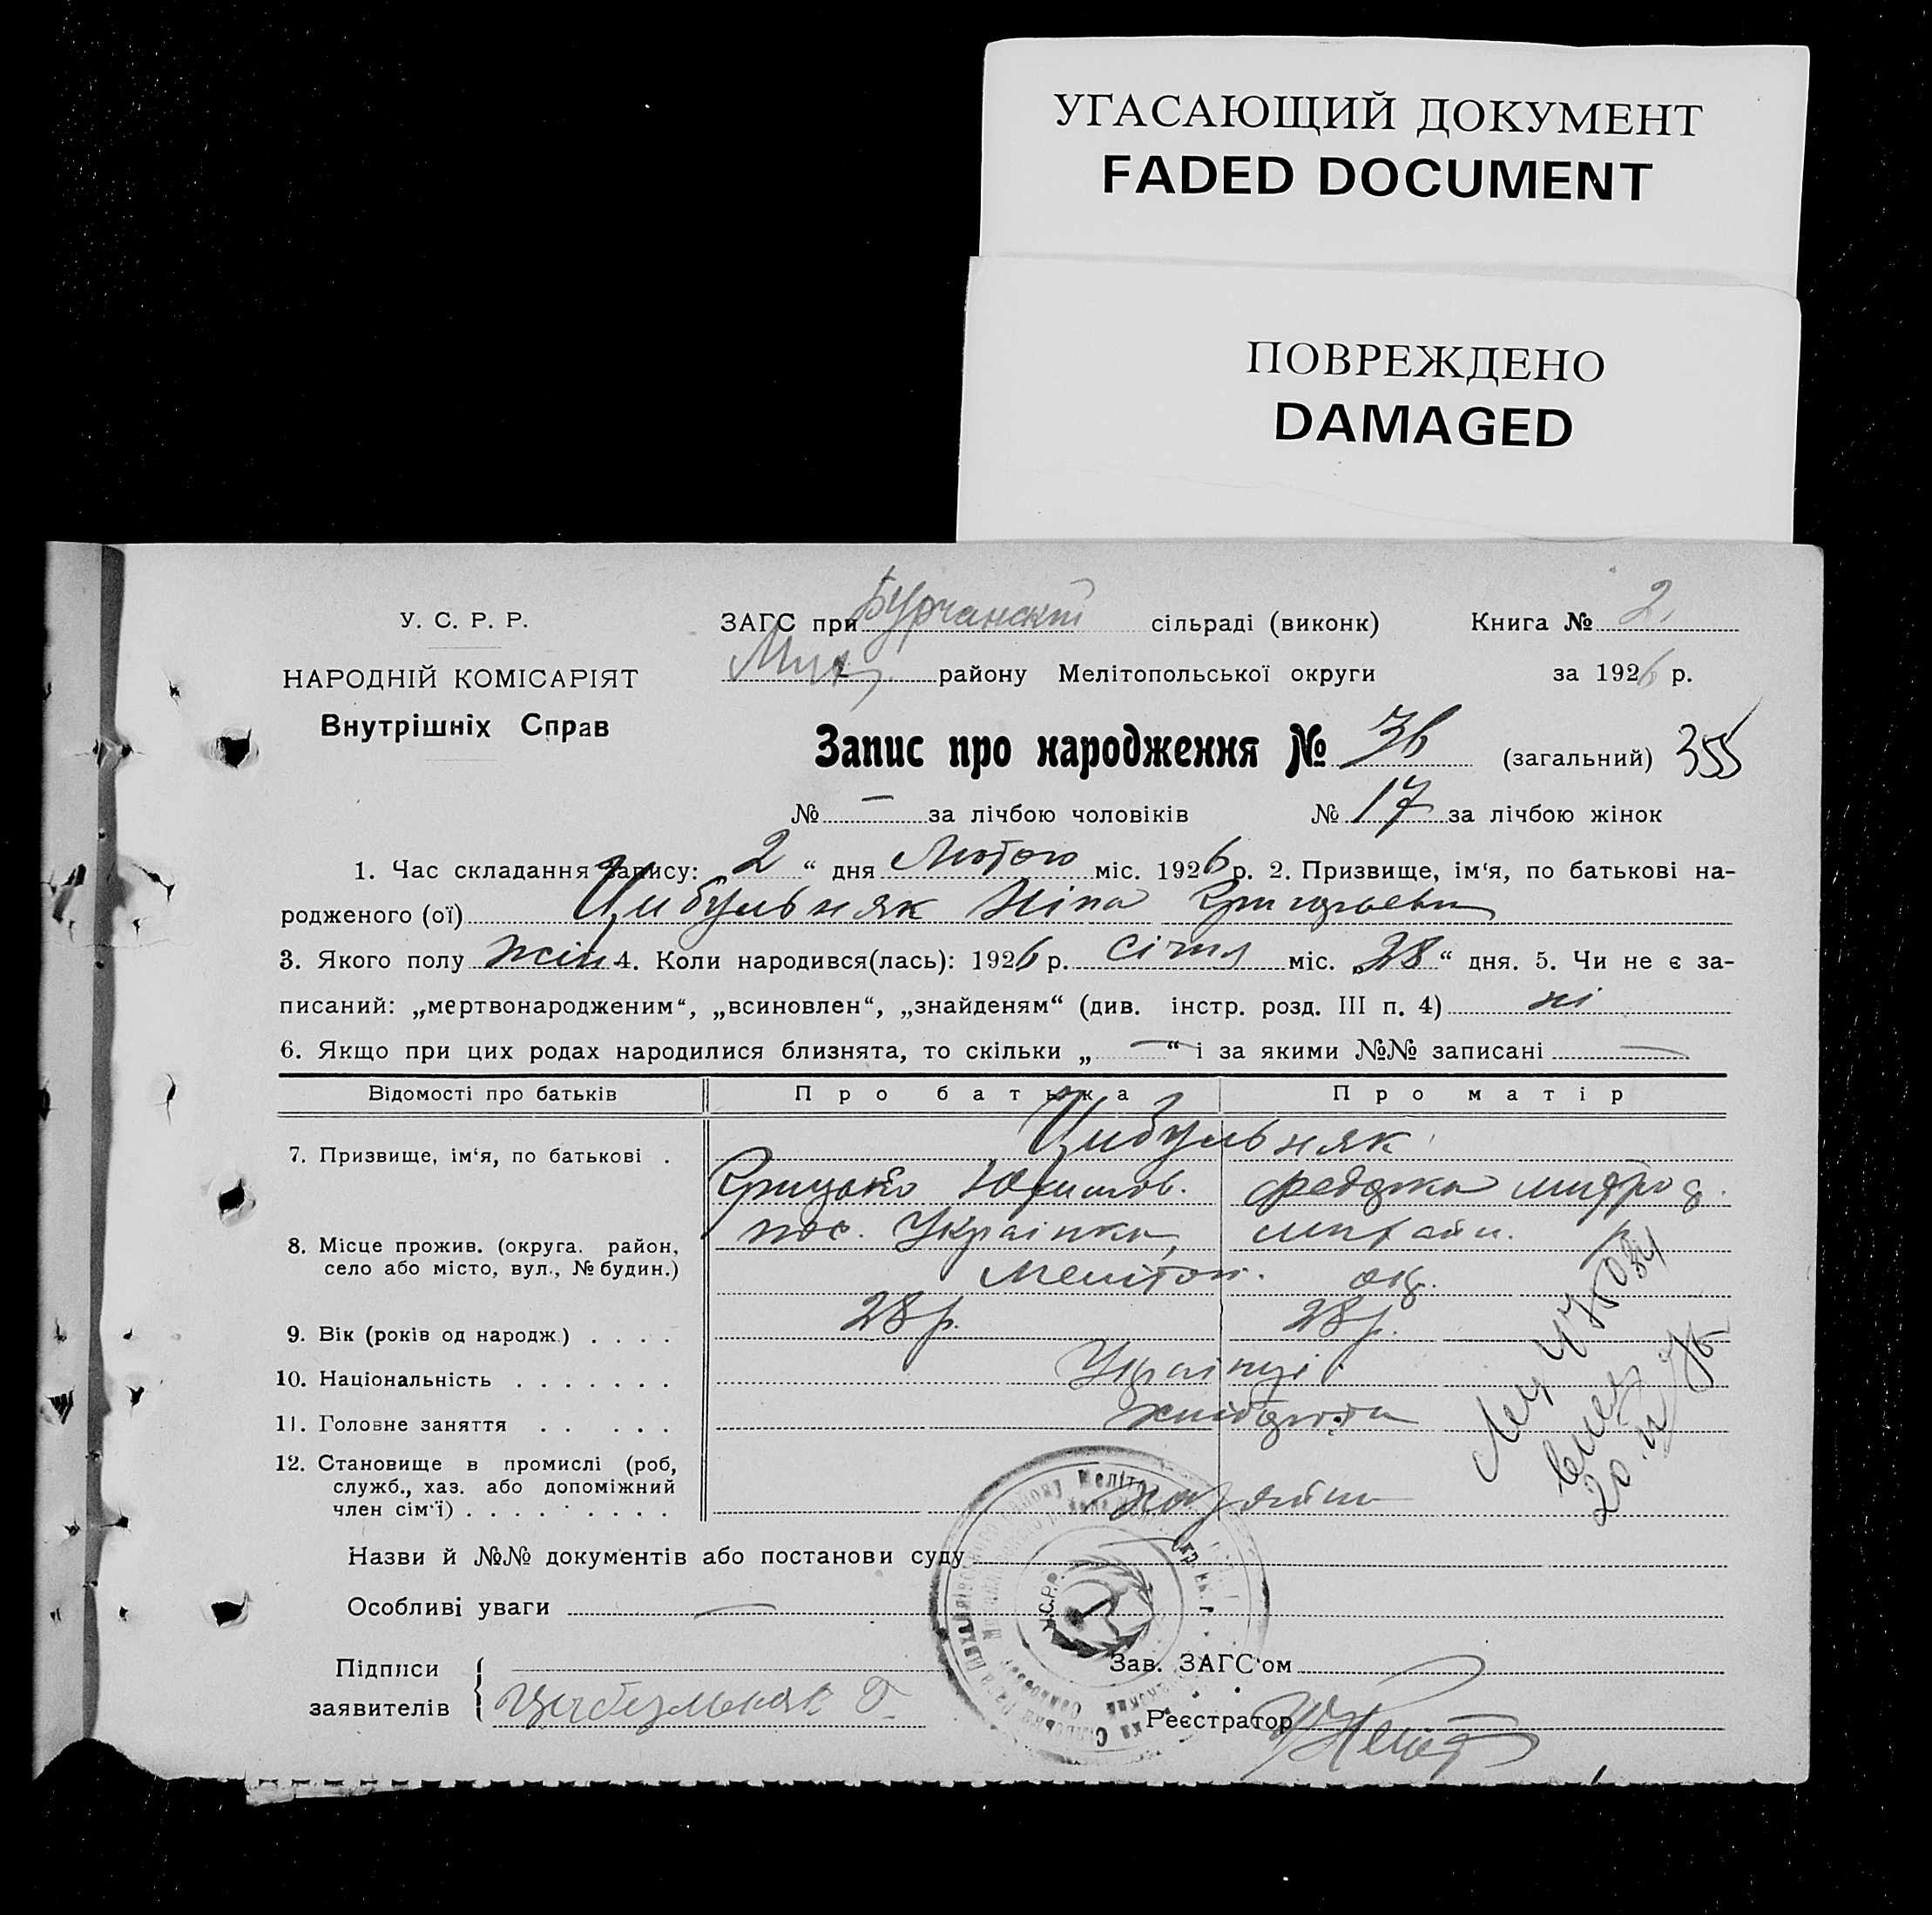 УГАСАЮЩИЙ ДОКУМЕНТ
FADED DOCUMENT
ПОВРЕЖДЕНО
DAMAGED
У. С. Р. Р.
НАРОДНІЙ КОМІСАРІЯТ
Внутрішніх Справ
ЗАГС при Бурчанскій сільраді (виконк) Книга № 2.
Мих. району Мелітопольської округи за 1926 р.
Запис про народження № 36 (загальний) 355
№ — за лічбою чоловіків № 17 за лічбою жінок
1. Час складання запису: 2 “ дня Лютого міс. 1926 р. 2. Призвище, ім‘я, по батькові на-
родженого (ої) Цибульняк Ніна Григорьевна
3. Якого полу жін 4. Коли народився(лась): 1926 р. Січня міс. „28“ дня. 5. Чи не є за-
писаний: „мертвонародженим“, „всиновлен“, „знайденям“ (див. інстр. розд. III п. 4) ні
6. Якщо при цих родах народилися близнята, то скільки „ — “ і за якими №№ записані —
Відомості про батьків Про батька Про матір
7. Призвище, ім‘я, по батькові . Цибульняк
Грицько Юхимов. Федорка
8. Місце прожив. (округа. район, село або місто, вул., № будин.) пос. Українка, михайл. р.
Мелітоп. окр.
9. Вік (років од народж.) . . . . 28 р. 28 р.
10. Національність . . . . . . . Українці
11. Головне заняття . . . . . хлібороби
12. Становище в промислі (роб,
служб., хаз. або допоміжний
член сім‘ї) . . . . . . . . . хазяйни
Назви й №№ документів або постанови суду
Особливі уваги —
Підписи
заявителів Цыбульняк Г.
Зав. ЗАГС‘ом
Реєстратор
У.С.Р.Р.